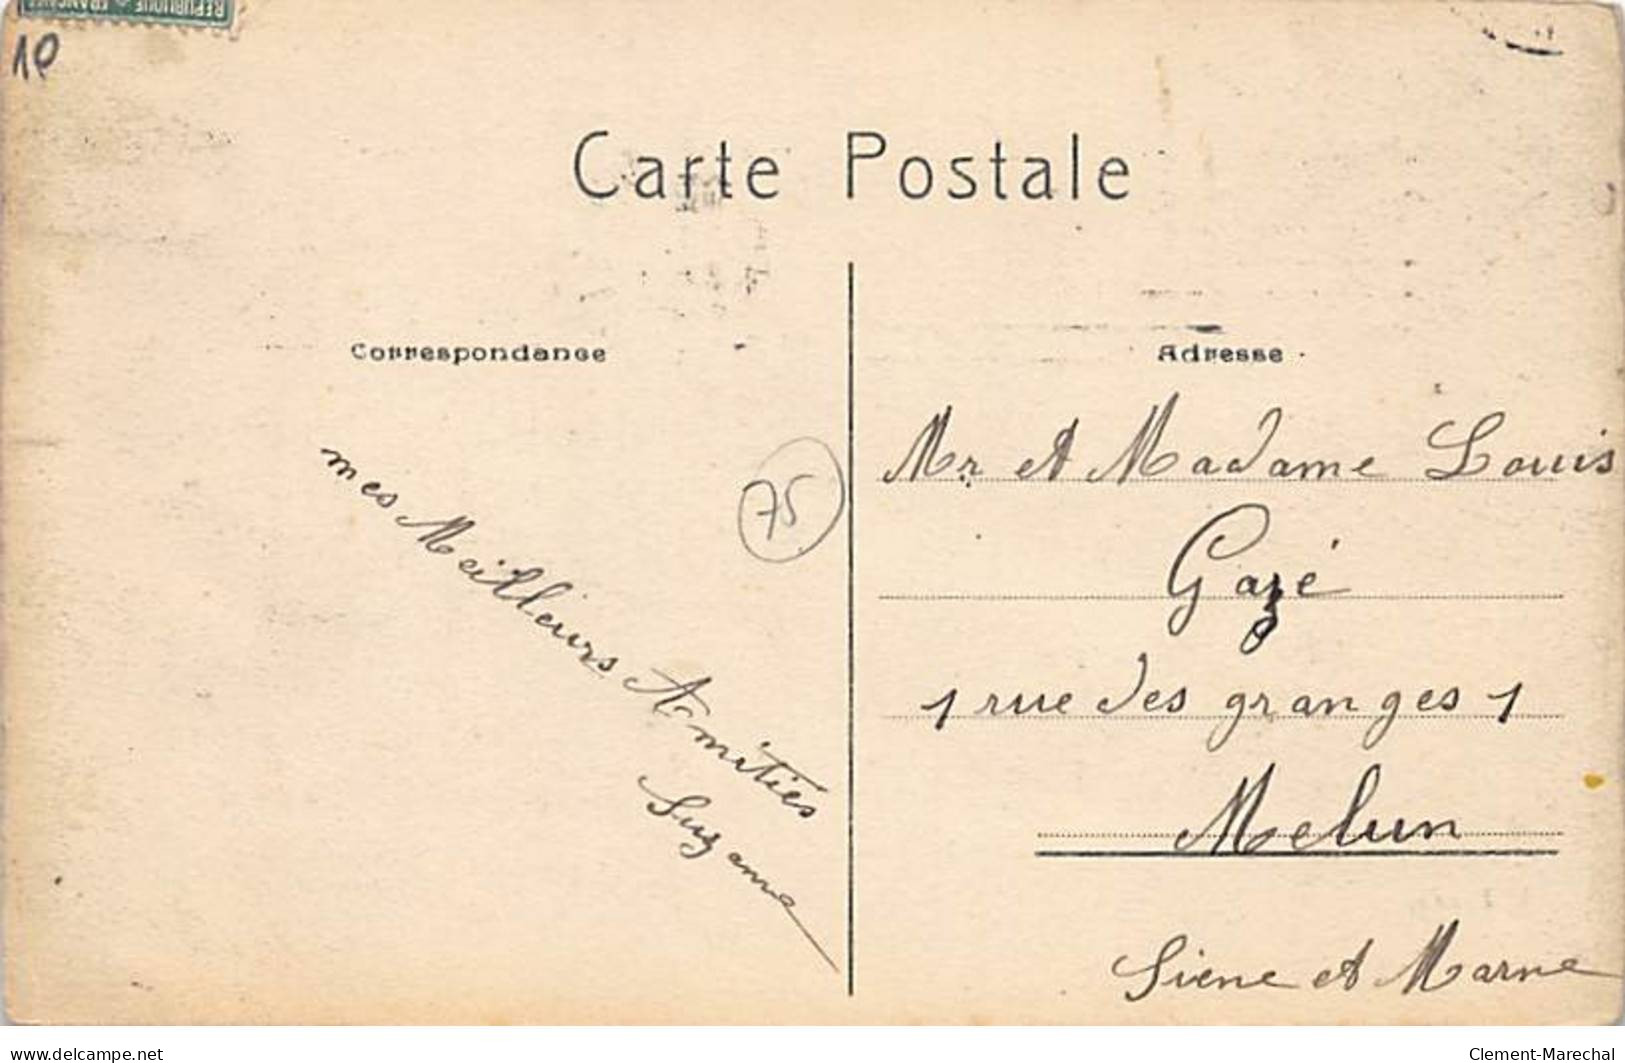 RÉPUBLIQUE FRANÇAISE
10
Carte Postale
Correspondance
Adresse
75
mes Meilleurs Amitiés
Suzanne
Mr et Madame Louis
Gazé
1 rue des granges 1
Melun
Siene et Marne
www.delcampe.net
Clement-Marechal